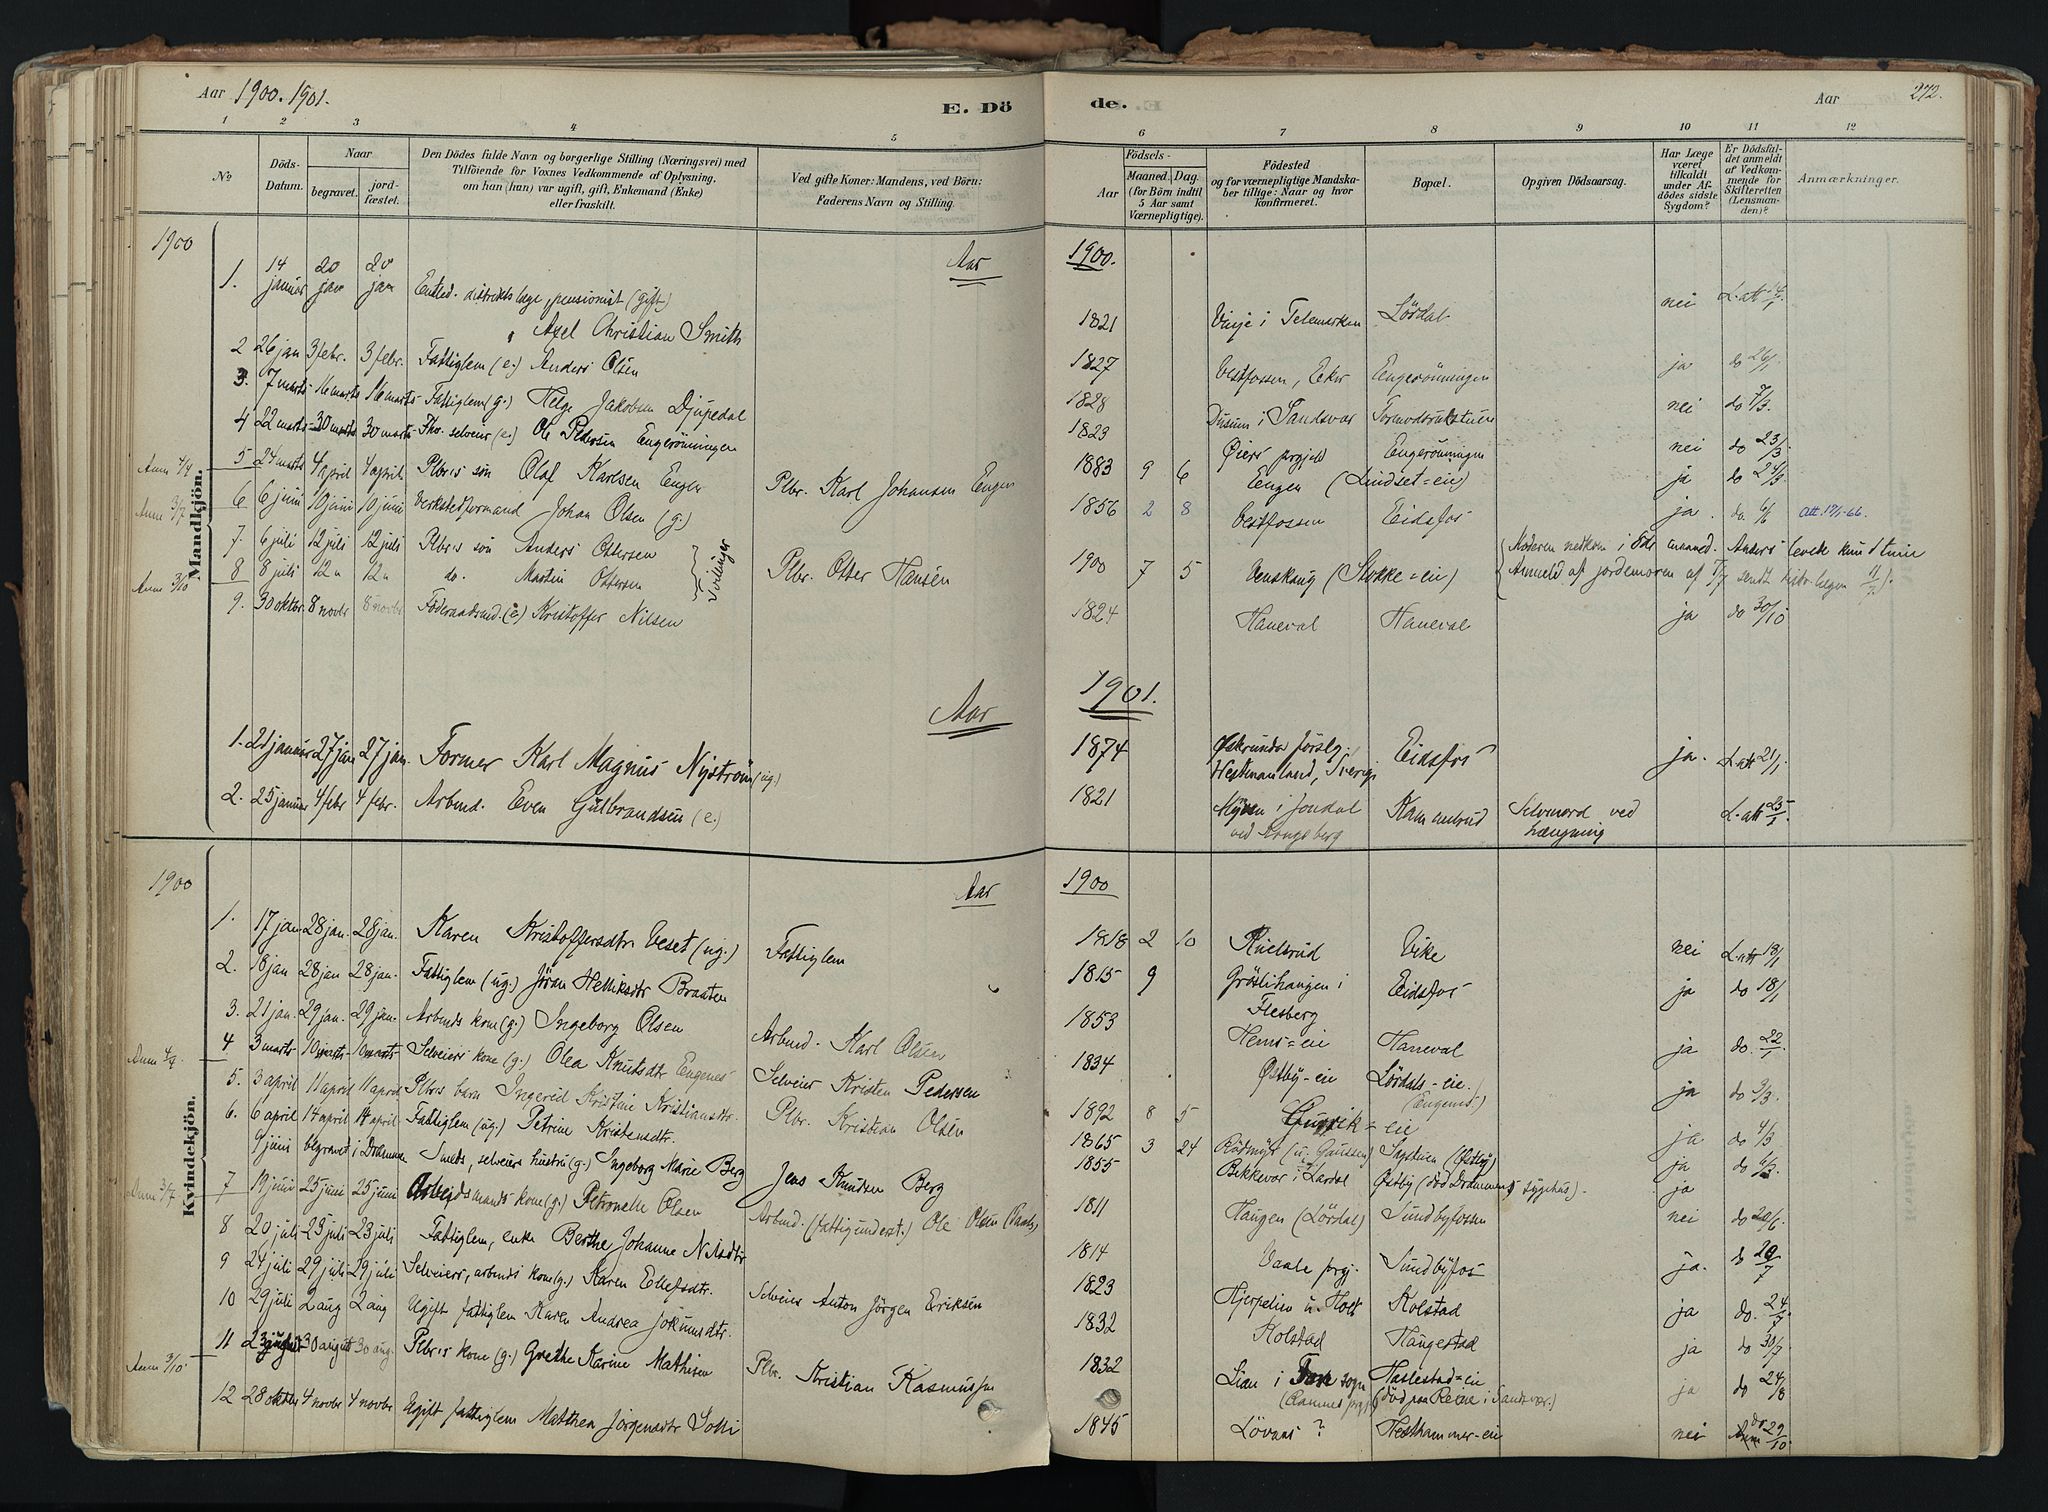 Aar 1900. 1901.
E. Döde.
Aar 272.
1 2 3 4 5 6 7 8 9 10 11 12
No
Döds-Datum.
Naar
begravet.
jordfæstet.
Den Dödes fulde Navn og borgerlige Stilling (Næringsvei) med Tilföiende for Voxnes Vedkommende af Oplysning, om han (hun) var ugift, gift, Enkemand (Enke) eller fraskilt.
Ved gifte Koner: Mandens, ved Börn: Faderens Navn og Stilling.
Födsels-
Aar
Maaned. Dag.
(for Börn indtil 5 Aar samt Værnepligtige).
Födested og for værnepligtige Mandskaber tillige: Naar og hvor konfirmeret.
Bopæl.
Opgiven Dödsaarsag.
Har Læge været tilkaldt under Afdödes sidste Sygdom?
Er Dödsfaldet anmeldt af Vedkommende for Skifteretten (Lensmanden)?
Anmærkninger.
Mandkjön.
1900 Aar 1900.
1. 14 januar 20 jan 20 jan Entled. distriktslæge, pensionist (gift)
Axel Christian Smith 1821 Vinje i Telemarken Lördal nei L. att 14/1.
2 26 jan 3 febr. 3 febr. Fattiglem (e.) Anders Olsen 1827 Vestfossen, Eker Engerönningen ja do 26/1
3. 7 marts 16 marts 16 marts Fattiglem (g.) Helge Jakobsen Djupedal 1828 i Sandsvær nei do 7/3.
4 22 marts 30 marts 30 marts Fhv. selveier (e.) Ole Pedersen Engerönningen 1823 Øiers prgjeld Engerönningen nei do 23/3
Anm 4/4 5 24 marts 4 april 4 april Plbr.s sön Olaf Karlsen Engen Plbr. Karl Johansen Engen 1883 9 6 Engen (Lindset=eie) ja do 24/3
Anm 3/7 6 6 juni 10 juni 10 juni Verkstedformand Johan Olsen (g.) 1856 2 8 Vestfossen Eidsfos ja. do. 6/6 Att. 17/1-66.
7. 6 juli 12 juli 12 juli Plbr.s sön Anders Ottersen
Tvillinger
Plbr. Otter Hansen 1900 7 5 (Stokke=eie) Moderen nedkom i 8de maaned. Anders levede kun 1 time
8 8 juli 12 " 12 " do. Martin Ottersen Anmeld. af jordemoren af 7/7 sendt distr.lægen 11/7.
Anm 3/10 9. 30 oktbr. 8 novbr 8 novbr Föderaadsmd. (e) Kristoffer Nilsen 1824 Haneval Haneval ja do 30/10
Aar 1901.
1. 21 januar 27 jan 27 jan. Former Karl Magnus Nyström (ug.) 1874 försg. Westmanland, Sverige Eidsfos ja. L. att 21/1
2. 25 januar 4 febr 4 febr. Arbmd. Even Gulbrandsen (e.) 1821 i Jondal ved Kongsberg Selvmord ved hængning L. att 25/1.
Kvindekjön.
1900 Aar 1900
1. 17 jan 28 jan. 28 jan. Karen Kristoffersdtr Veset (ug.) Fattiglem 1818 2 10 Ruelsrud Vike nei L. att 18/1
2. 18 jan 28 jan 28 jan. Fattiglem (ug.) Jöran Helliksdtr Braaten 1815 9 Gröslihaugen i Flesberg Eidsfos ja do 18/1
3. 21 jan. 29 jan. 29 jan. Arbmds kone (g.) Ingeborg Olsen Arbmd. Karl Olsen 1853 Hems=eie Haneval ja do. 22/1
Anm 4/4 4. 3 marts 10 marts 10 marts Selveiers kone (g.) Olea Knutsdtr Engenes Selveier Kristen Pedersen 1834 Østby-eie Lördals-eie. (Engenes.) ja do 3/3.
5. 3 april 11 april 11 april Plbrs barn Ingerid Kristine Kristiansdtr. Plbr. Kristian Olsen 1892 8 5 eie ja do 4/3
6. 6 april 14 april 14 april Fattiglem (ug.) Petrine Kristensdtr. 1865 3 24 Rödmyr Sagstuen (Østby) ja do 6/3.
9 juni begravet i Drammen Smeds, selveiers hustru (g.) Ingeborg Marie Berg Jens Knudsen Berg 1855 Bekkevar i Lardal Østby (död Drammens sygehus). ja
Anm 3/7 7 19 juni 25 juni 25 juni Arbeidsmands kone (g.) Petronelle Olsen Arbmd. (fattigunderst.) Ole Olsen 1811 Haugen (Lördal) Sundbyfossen nei do 20/6.
8 20 juli 23 juli 23 juli Fattiglem, enke Berthe Johanne Nilsdtr 1814 Vaale prgj. Sundbyfos ja. do 20/7
9 24 juli 29 juli 29 juli Selveiers, arbmds kone (g.) Karen Ellefsdtr. Selveier Anton Jörgen Eriksen 1823 Hjerpelien u. Holt Kolstad ja do. 24/7
10 29 juli 2 aug 2 aug Ugift fattiglem Karen Andrea Jokumsdtr. 1832 Kolstad Haugestad ja do 30/7
Anm 3/10. 11 23 august 30 august 30 aug. Plbr.s kone (g.) Grethe Karine Mathisen Plbr. Kristian Rasmussen 1832 Lian i Fon sogn (Ramnes prgj.) Haslestad=eie (död paa Reine i Sandsvær.) ja do 24/8
12 28 oktbr 4 novbr 4 novbr Ugift fattiglem Mathea Jörgensdtr Solli 1845 Lövaas ? Hesthammer-eie nei do 29/10.